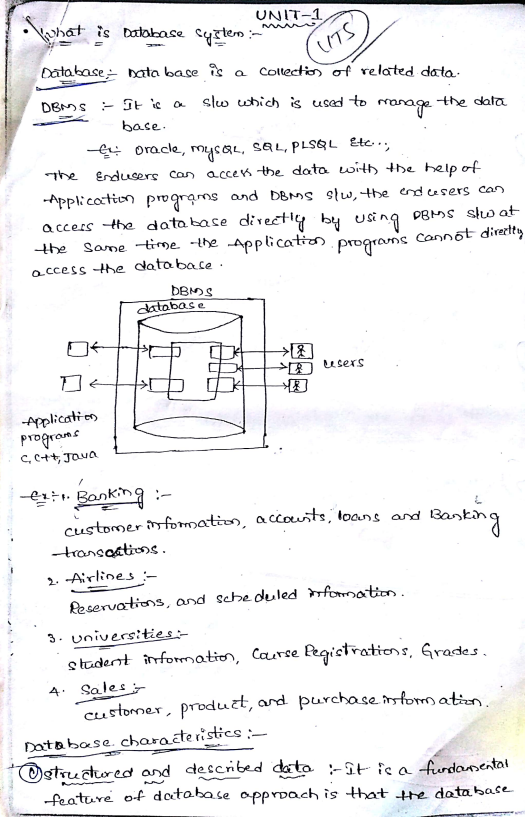 UNIT-1
UTS
• What is Database System :-
Database :- Data base is a collection of related data.
DBMS :- It is a s/w which is used to manage the data
base.
Ex:- Oracle, mySQL, SQL, PLSQL Etc..,
The Endusers can access the data with the help of
Application programs and DBMS s/w, the end users can
access the database directly by using DBMS s/w at
the same time the Application programs cannot directly
access the database.
DBMS
database
users
Application
programs
C, C++, Java
ex:- 1. Banking :-
customer information, accounts, loans and Banking
transactions.
2. Airlines :-
Reservations, and scheduled information.
3. Universities:-
student information, Course Registrations, Grades.
4. Sales :-
customer, product, and purchase information.
Database characteristics :-
① structured and described data :- It is a fundamental
feature of database approach is that the database